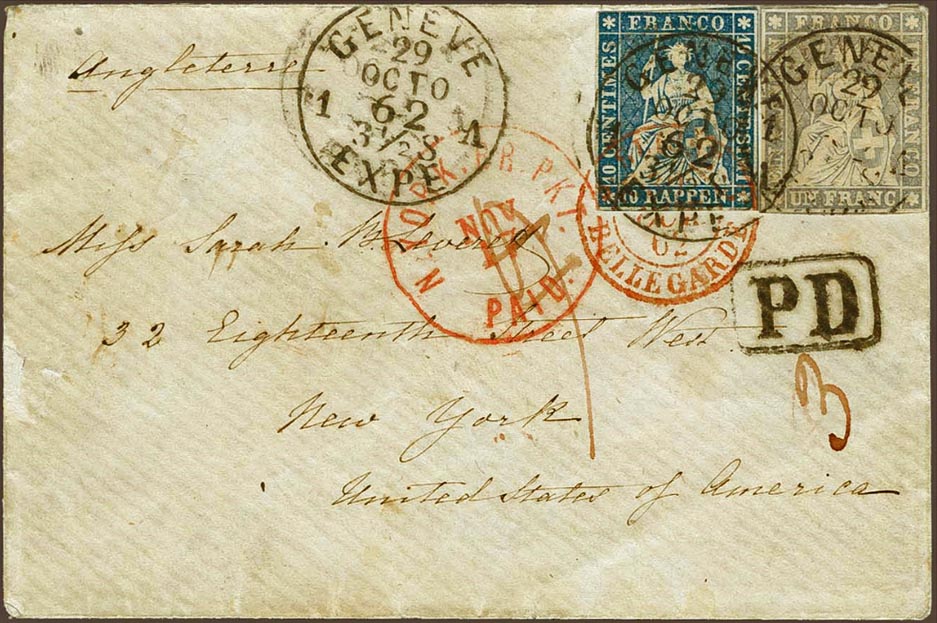 Angleterre
GENÈVE
29
OCTO
62
3½S
1 1
EXPÉ
FRANCO
10 CENTIMES
10 RAPPEN
GENÈVE
29
OCT
62
FRANCO
UN FRANC
GENÈVE
29
OCTO
N. YORK. BR. PKT.
NOV
17
PAID.
BELLEGARDE
62
PD
Miss Sarah B.
32 Eighteenth Street West
3
New York
United States of America